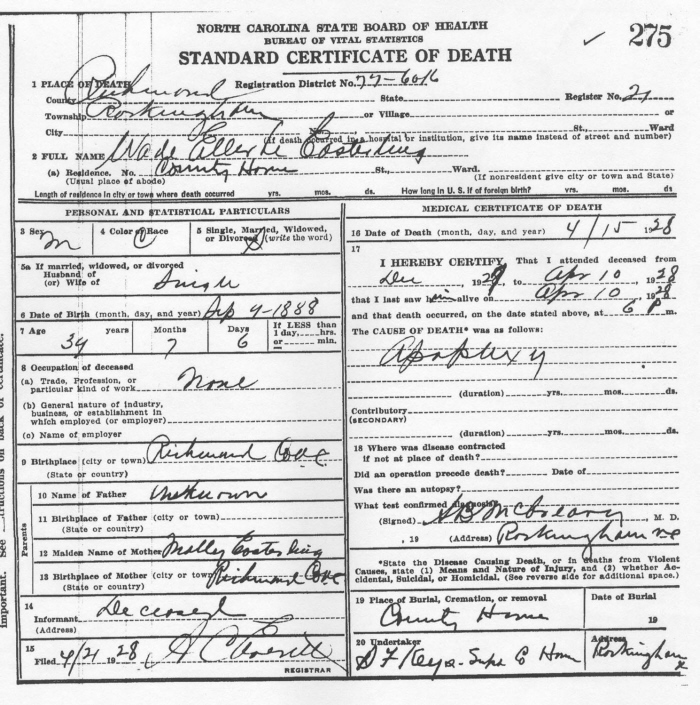 NORTH CAROLINA STATE BOARD OF HEALTH
BUREAU OF VITAL STATISTICS
STANDARD CERTIFICATE OF DEATH
✓ 275
1 PLACE OF DEATH Registration District No. 77-6016
County Richmond State Register No. 21
Township Rockingham or Village or
City No. St., Ward
(If death occurred in a hospital or institution, give its name instead of street and number)
2 FULL NAME Wade Easterling
(a) Residence. No. County Home St., Ward.
(Usual place of abode) (If nonresident give city or town and State)
Length of residence in city or town where death occurred yrs. mos. ds. How long in U. S. if of foreign birth? yrs. mos. ds.
PERSONAL AND STATISTICAL PARTICULARS
3 Sex M 4 Color or Race C 5 Single, Married, Widowed, or Divorced (write the word) S
5a If married, widowed, or divorced
Husband of
(or) Wife of Single
6 Date of Birth (month, day, and year) Sep 9-1888
7 Age years Months Days If LESS than
1 day, hrs.
39 7 6 or min.
8 Occupation of deceased
(a) Trade, Profession, or
particular kind of work None
(b) General nature of industry,
business, or establishment in
which employed (or employer)
(c) Name of employer
9 Birthplace (city or town) Richmond Co
(State or country)
Parents
10 Name of Father Unknown
11 Birthplace of Father (city or town)
(State or country)
12 Maiden Name of Mother Molly Easterling
13 Birthplace of Mother (city or town) Richmond Co
(State or country)
14
Informant Deceased
(Address)
15
Filed 4/21 1928 A C Everett
REGISTRAR
MEDICAL CERTIFICATE OF DEATH
16 Date of Death (month, day, and year) 4/15 1928
17
I HEREBY CERTIFY, That I attended deceased from
Dec, 192 to Apr 10, 1928
that I last saw him alive on Apr 10, 1928
and that death occurred, on the date stated above, at 6 P m.
The CAUSE OF DEATH* was as follows:
Apoplexy
(duration) yrs. mos. ds.
Contributory
(SECONDARY)
(duration) yrs. mos. ds.
18 Where was disease contracted
if not at place of death?
Did an operation precede death? Date of
Was there an autopsy?
What test confirmed diagnosis?
(Signed) M. D.
, 19 (Address) Rockingham NC
*State the Disease Causing Death, or in deaths from Violent
Causes, state (1) Means and Nature of Injury, and (2) whether Ac-
cidental, Suicidal, or Homicidal. (See reverse side for additional space.)
19 Place of Burial, Cremation, or removal Date of Burial
County Home 19
20 Undertaker Address
Supt C Home Rockingham
important. See